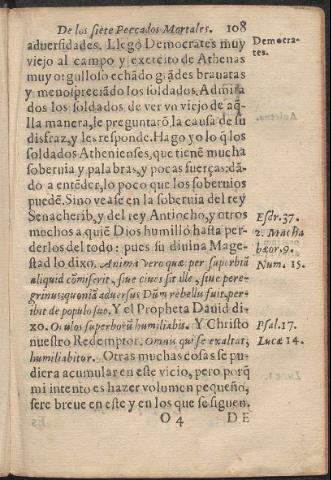 De los siete Peccados Mortales. 108
aduersidades. Llegò Democrates muy
viejo al campo y exercito de Athenas
muy orgulloso echãdo grãdes brauatas
y menospreciãdo los soldados. Admira
dos los soldados de ver vn viejo de aq̃-
lla manera, le preguntarõ la causa de su
disfraz, y les responde. Hago yo lo q̃ los
soldados Athenienses, que tienẽ mucha
soberuia y palabras, y pocas fuerças: dã-
do a entẽder, lo poco que los soberuios
puedẽ. Sino vease en la soberuia del rey
Senacherib, y del rey Antiocho, y otros
muchos a quiẽ Dios humillò hasta per-
derlos del todo: pues su diuina Mage-
stad lo dixo. Anima vero quæ per superbiã
aliquid cõmiserit, siue ciuis sit ille, siue pere-
grinus: quoniã aduersus Dũm rebellis fuit, per-
ibit de populo suo. Y el Propheta Dauid di-
xo. Oculos superborũ humiliabis. Y Christo
nuestro Redemptor. Omnis qui se exaltat,
humiliabitur. Otras muchas cosas se pu-
diera acumular en este vicio, pero porq̃
mi intento es hazer volumen pequeño,
sere breue en este y en los que se siguen.
O 4 DE
Democra-
tes.
Esdr. 37.
2. Macha
bæor. 9.
Num. 15.
Psal. 17.
Lucæ 14.